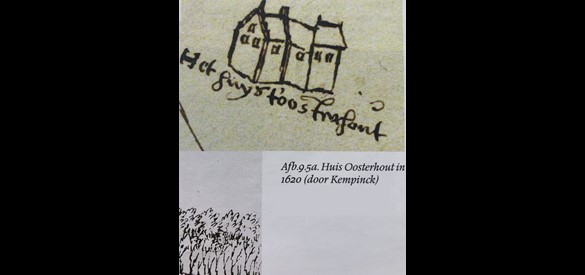 Het huys t'oosterhout
Afb.9.5a. Huis Oosterhout in
1620 (door Kempinck)